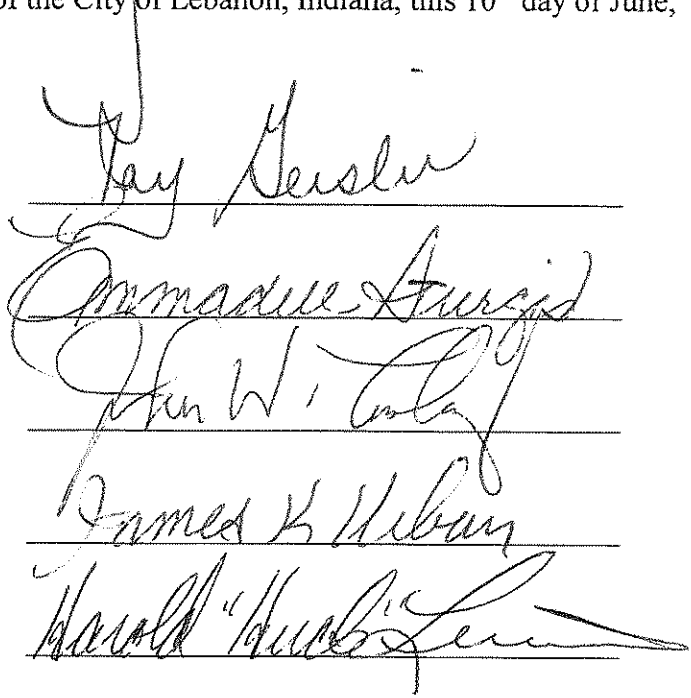 of the City of Lebanon, Indiana, this 10th day of June,
Ray Geisler
Emmadele Sturgis
John W.
James K Urban
Harold "Huck" Lewis